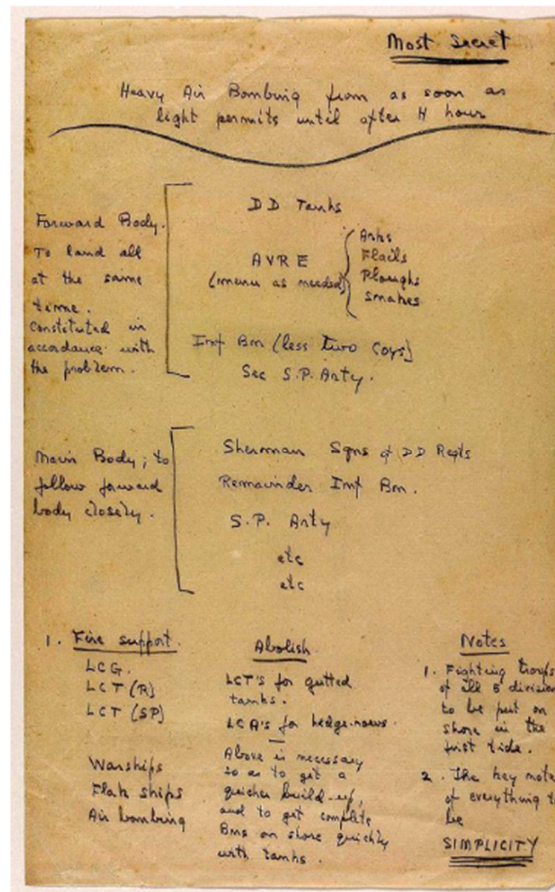 Most Secret
Heavy Air Bombing from as soon as
light permits until after H hour
Forward Body.
To land all
at the same
time.
Constituted in
accordance with
the problem.
DD Tanks
AVRE
(menu as needed)
Arks
Flails
Ploughs
Snakes
Inf Bn (less two Coys)
Sec S.P. Arty.
Main Body; to
follow forward
body closely.
Sherman Sqns of DD Regts
Remainder Inf Bn.
S.P. Arty
etc
etc
1. Fire support.
LCG.
LCT (R)
LCT (SP)
Warships
Flak ships
Air bombing
Abolish
LCT's for gutted
tanks.
LCA's for hedge-rows
Above is necessary
so as to get a
quicker build-up,
and to get complete
Bns on shore quickly
with tanks.
Notes
1. Fighting troops
of all 5 division
to be put on
shore in the
first tide.
2. The key note
of everything t
be
SIMPLICITY